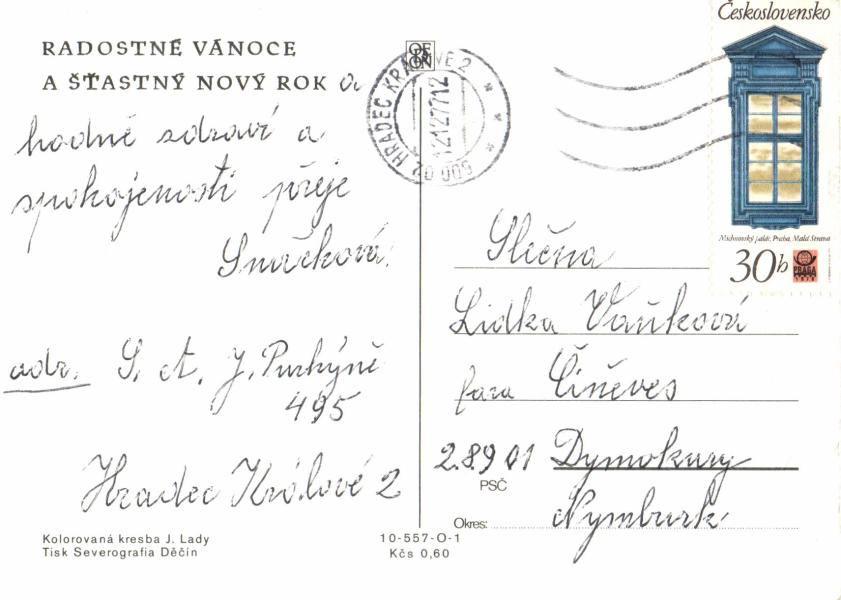 RADOSTNÉ VÁNOCE
A ŠŤASTNÝ NOVÝ ROK a
hodně zdraví a
spokojenosti přeje
Smrčková.
adr. S. A. J. Purkyně
495
Hradec Králové 2
Kolorovaná kresba J. Lady
Tisk Severografia Děčín
10-557-O-1
Kčs 0,60
HRADEC KRÁLOVÉ 2
12.12.77-12
Československo
Michnovský palác, Praha, Malá Strana
30h
PRAGA
1978
Slečna
Lidka Vaňková
fara Činěves
289 01 Dymokury
PSČ
Okres: Nymburk